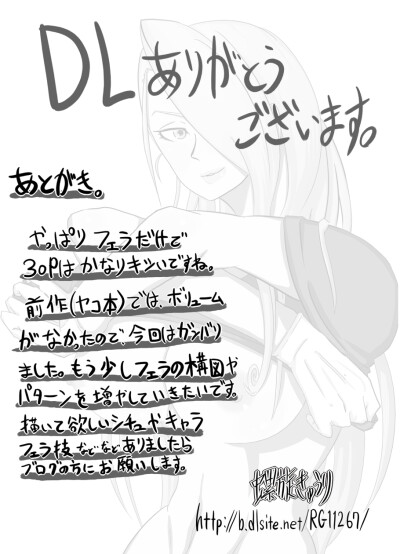 DLありがとう
ございます。
あとがき。
やっぱりフェラだけで
30Pはかなりキツいですね。
前作(ヤコ本)では、ボリューム
がなかったので、今回はガンバリ
ました。もう少しフェラの構図や
パターンを増やしていきたいです。
描いて欲しいシチュやキャラ
フェラ技、などなどありましたら
ブログの方にお願いします。
螺旋きゅうり
http://b.dlsite.net/RG11267/